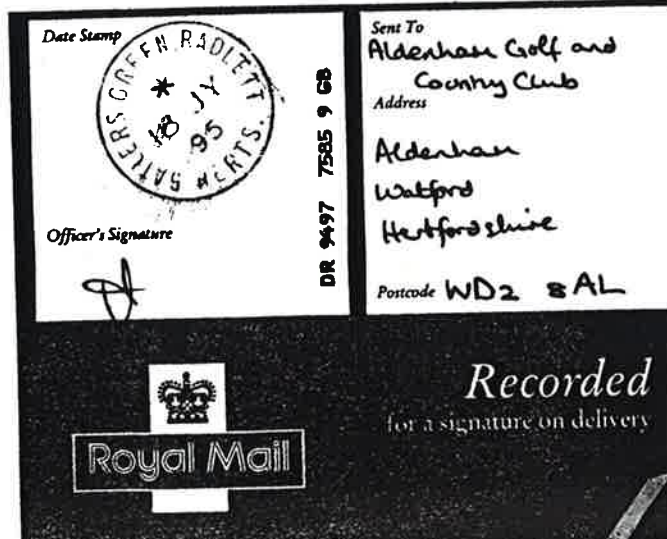 Date Stamp
BATLERS GREEN RADLETT
*
18 JY
95
HERTS.
Officer's Signature
DR 9497 7585 9 GB
Sent To
Aldenham Golf and
Country Club
Address
Aldenham
Watford
Hertfordshire
Postcode WD2 8AL
Royal Mail
Recorded
for a signature on delivery